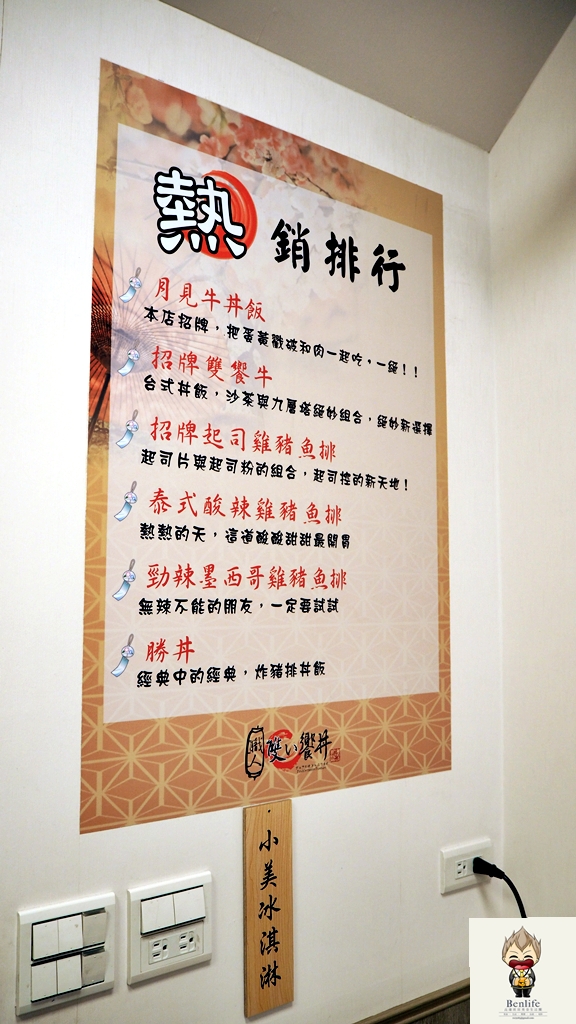 熱銷排行
月見牛丼飯
本店招牌，把蛋黃戳破和肉一起吃，一絕！！
招牌雙饗牛
台式丼飯，沙茶與九層塔絕妙組合，絕妙新選擇
招牌起司雞豬魚排
起司片與起司粉的組合，起司控的新天地！
泰式酸辣雞豬魚排
熱熱的天，這道酸酸甜甜最開胃
勁辣墨西哥雞豬魚排
無辣不能的朋友，一定要試試
勝丼
經典中的經典，炸豬排丼飯
職人 雙い饗丼
小美冰淇淋
Benlife